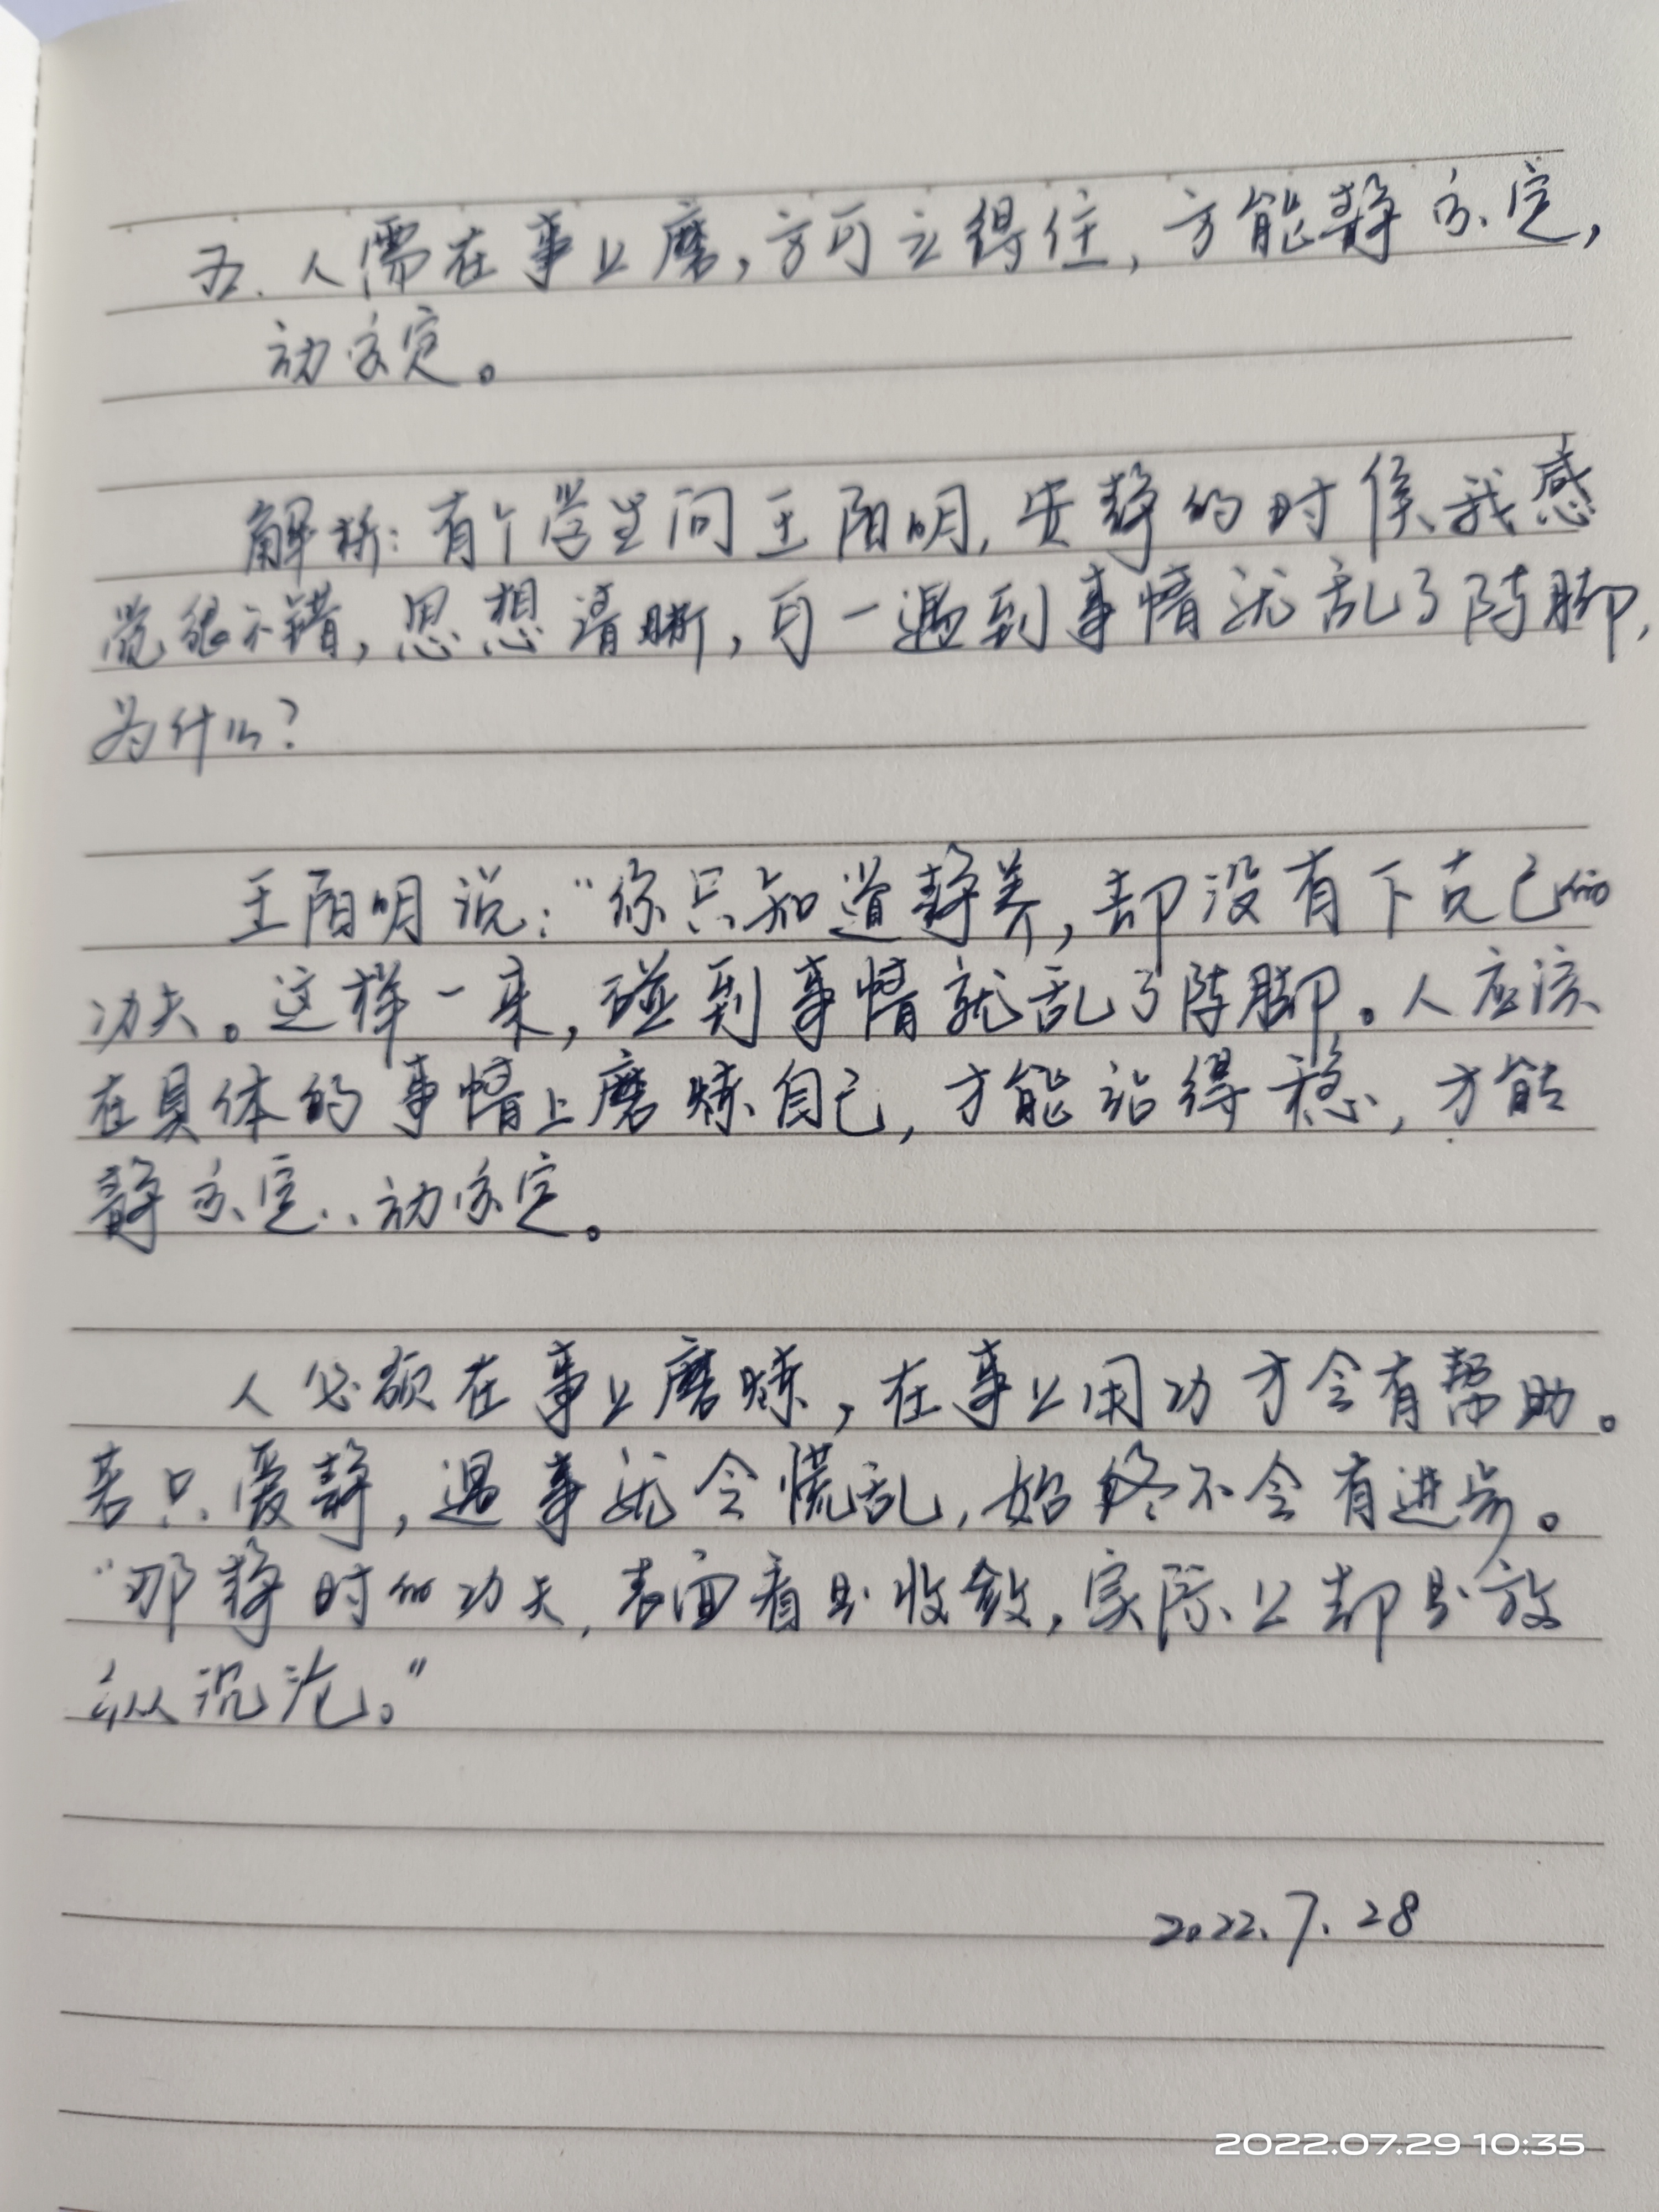 五.人需在事上磨,方可立得住,方能静亦定,
动亦定。
解析:有个学生问王阳明,安静的时候我感
觉很不错,思想清晰,可一遇到事情就乱了阵脚,
为什么?
王阳明说:“你只知道静养,却没有下克己的
功夫。这样一来,碰到事情就乱了阵脚。人应该
在具体的事情上磨炼自己,才能站得稳,才能
静亦定..动亦定。
人必须在事上磨炼,在事上用功才会有帮助。
若只爱静,遇事就会慌乱,始终不会有进步。
“那静时的功夫,表面看是收敛,实际上却是放
纵沉沦。”
2022.7.28
2022.07.29 10:35